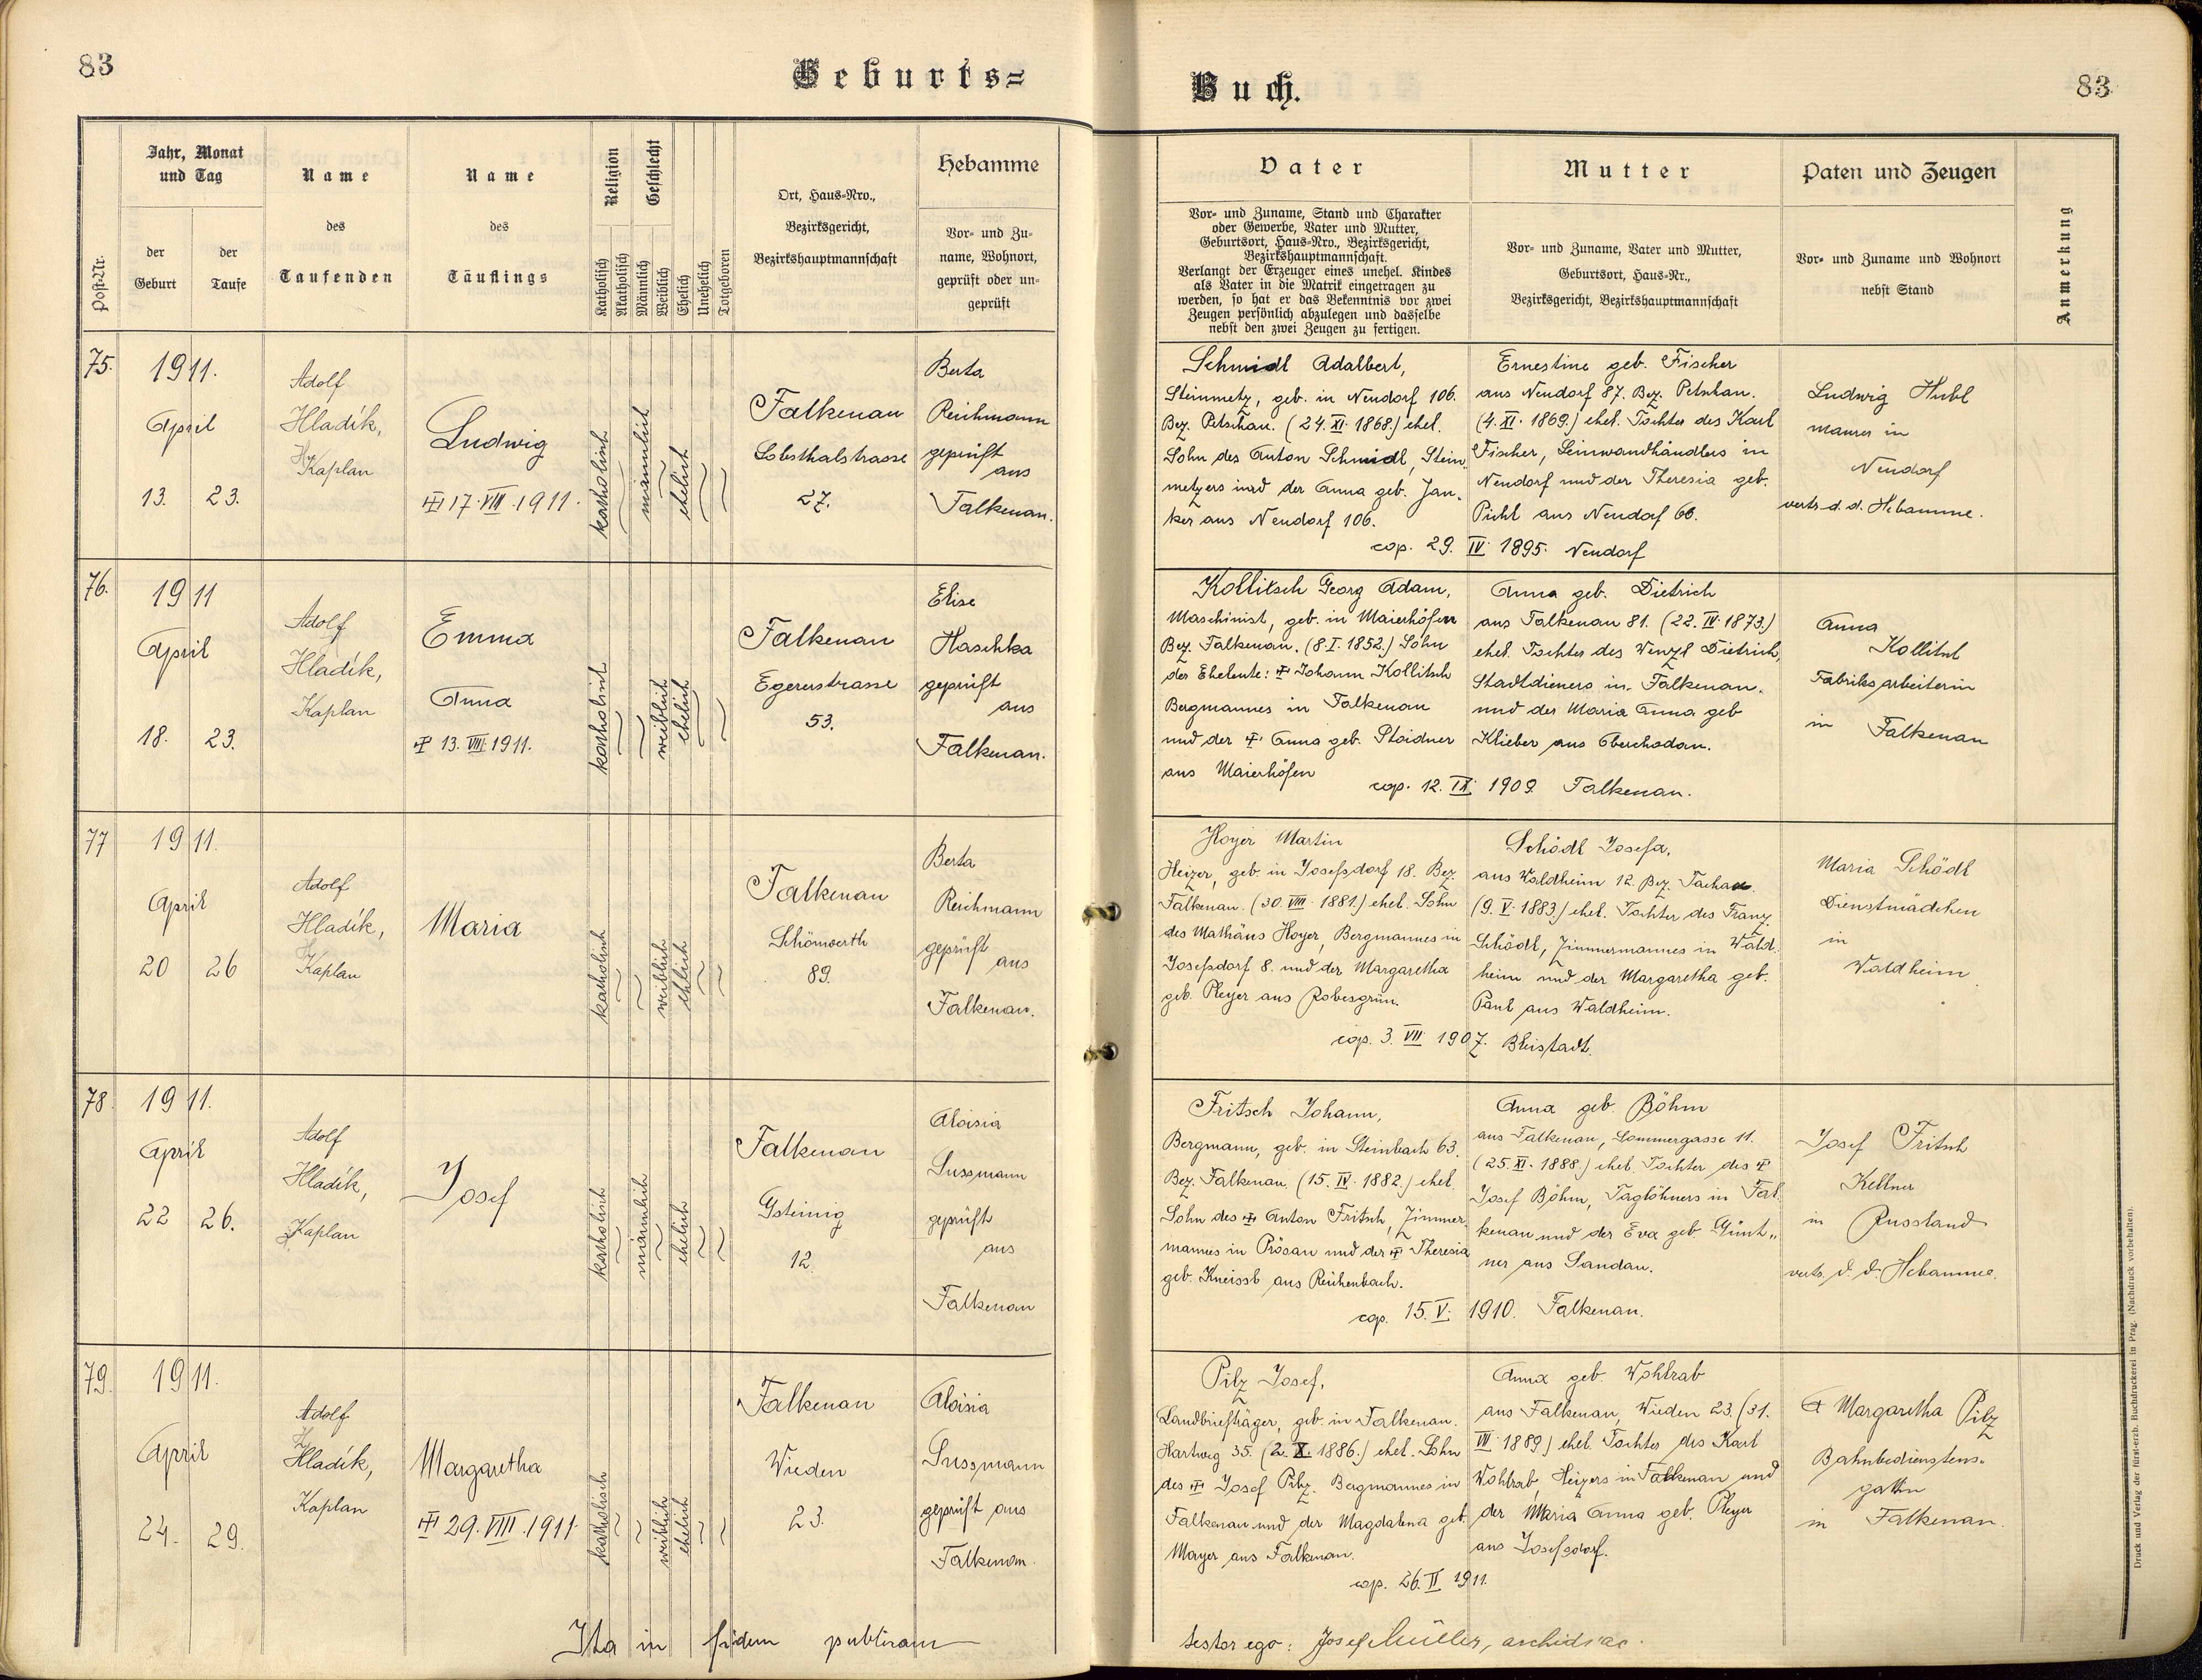 83
Geburts=
Buch.
83
Post-Nr.
Jahr, Monat
und Tag
der
Geburt
der
Taufe
Name
des
Taufenden
Name
des
Täuflings
Religion
Geschlecht
Katholisch
Akatholisch
Männlich
Weiblich
Ehelich
Unehelich
Totgeboren
Ort, Haus-Nro.,
Bezirksgericht,
Bezirkshauptmannschaft
Hebamme
Vor- und Zu-
name, Wohnort,
geprüft oder un-
geprüft
Vater
Vor- und Zuname, Stand und Charakter
oder Gewerbe, Vater und Mutter,
Geburtsort, Haus-Nro., Bezirksgericht,
Bezirkshauptmannschaft.
Verlangt der Erzeuger eines unehel. Kindes
als Vater in die Matrik eingetragen zu
werden, so hat er das Bekenntnis vor zwei
Zeugen persönlich abzulegen und dasselbe
nebst den zwei Zeugen zu fertigen.
Mutter
Vor- und Zuname, Vater und Mutter,
Geburtsort, Haus-Nr.,
Bezirksgericht, Bezirkshauptmannschaft
Paten und Zeugen
Vor- und Zuname und Wohnort
nebst Stand
Anmerkung
75.
1911.
April
13. 23.
Adolf
Hladík,
Kaplan
Ludwig
17. VIII. 1911.
katholisch
männlich
ehelich
Falkenau
Lobsthalstrasse
27.
Berta
Reichmann
geprüft
aus
Falkenau.
Schmidl Adalbert,
Steinmetz, geb. in Neudorf 106.
Bez. Petschau. (24. XI. 1868.) ehel.
Sohn des Anton Schmidl, Stein-
metzers und der Anna geb. Jan-
ker aus Neudorf 106.
Ernestine geb. Fischer
aus Neudorf 87. Bez. Petschau.
(4. XI. 1869.) ehel. Tochter des Karl
Fischer, Leinwandhändlers in
Neudorf und der Theresia geb.
Pichl aus Neudorf 66.
cop. 29. IV. 1895. Neudorf
Ludwig Hubl
maurer in
Neudorf
vertr. d. d. Hebamme.
76.
1911
April
18. 23.
Adolf
Hladík,
Kaplan
Emma
Anna
13. VIII. 1911.
katholisch
weiblich
ehelich
Falkenau
Egererstrasse
53.
Elise
Haschka
geprüft
aus
Falkenau.
Kollitsch Georg Adam,
Maschinist, geb. in Maierhöfen
Bez. Falkenau. (8. I. 1852.) Sohn
der Eheleute: Johann Kollitsch
Bergmannes in Falkenau
und der Anna geb. Ploidner
aus Maierhöfen
Anna geb. Dietrich
aus Falkenau 81. (22. IV. 1873.)
ehel. Tochter des Wenzl Dietrich,
Stadtdieners in Falkenau.
und der Maria Anna geb
Klieber aus Oberchodau.
cop. 12. IX. 1909. Falkenau.
Anna
Kollitsch
Fabriksarbeiterin
in Falkenau
77
1911.
April
20 26
Adolf
Hladík,
Kaplan
Maria
katholisch
weiblich
ehelich
Falkenau
Schönwerth
89.
Berta
Reichmann
geprüft
aus
Falkenau.
Hoyer Martin
Heizer, geb. in Josefsdorf 18. Bez.
Falkenau. (30. VIII. 1881.) ehel. Sohn
des Mathäus Hoyer, Bergmannes in
Josefsdorf 8. und der Margaretha
geb. Pleyer aus Robesgrün.
Schödl Josefa,
aus Waldheim 12. Bez. Tachau
(9. V. 1883.) ehel. Tochter des Franz
Schödl, Zimmermannes in Wald-
heim und der Margaretha geb.
Paul aus Waldheim.
cop. 3. VII. 1907. Bleistadt.
Maria Schödl
Dienstmädchen
in
Waldheim
78.
1911.
April
22 26.
Adolf
Hladík,
Kaplan
Josef
katholisch
männlich
ehelich
Falkenau
Gsteinig
12.
Aloisia
Sussmann
geprüft
aus
Falkenau
Fritsch Johann,
Bergmann, geb. in Steinbach 63.
Bez. Falkenau. (15. IV. 1882.) ehel.
Sohn des Anton Fritsch, Zimmer-
mannes in Prösau und der Theresia
geb. Kneissl aus Reichenbach.
Anna geb. Böhm
aus Falkenau, Sommergasse 11.
(25. XI. 1888.) ehel. Tochter des
Josef Böhm, Taglöhners in Fal-
kenau und der Eva geb. Günth-
ner aus Sandau.
cop. 15. V. 1910. Falkenau.
Josef Fritsch
Kellner
in Russland
vertr. d. d. Hebamme.
79.
1911.
April
24. 29.
Adolf
Hladík,
Kaplan
Margaretha
29. VIII. 1911.
katholisch
weiblich
ehelich
Falkenau
Wieden
23.
Aloisia
Sussmann
geprüft aus
Falkenau.
Pilz Josef,
Landbriefträger, geb. in Falkenau.
Hartweg 35. (2. X. 1886.) ehel. Sohn
des Josef Pilz, Bergmannes in
Falkenau und der Magdalena geb.
Mayer aus Falkenau.
Anna geb. Wohlrab
aus Falkenau, Wieden 23. (31.
VII. 1889.) ehel. Tochter des Karl
Wohlrab, Heizers in Falkenau und
der Maria Anna geb. Pleyer
aus Josefsdorf.
cop. 26. II. 1911.
Margaretha Pilz
Bahnbedienstens-
gattin
in Falkenau.
Ita in fidem publicam
testor ego: Josef Müller, archidiac.
Druck und Verlag der fürst-erzb. Buchdruckerei in Prag. (Nachdruck vorbehalten).